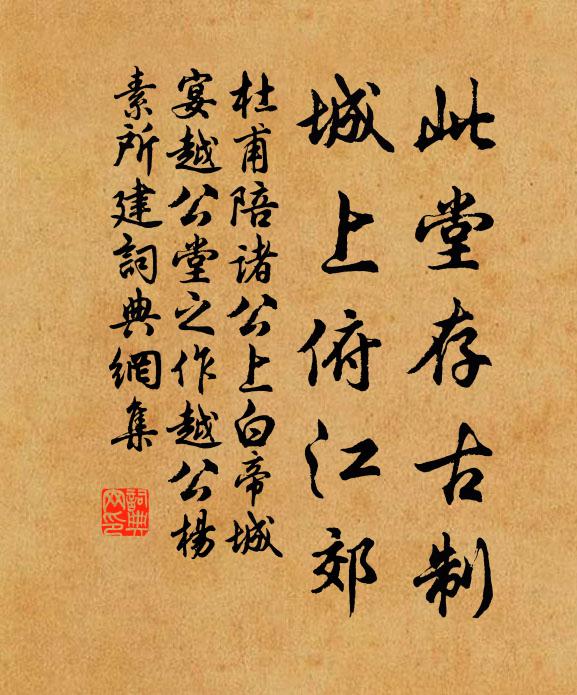 此堂存古制
城上俯江郊
杜甫陪诸公上白帝城
宴越公堂之作越公楊
素所建詞典網集
詞典網印